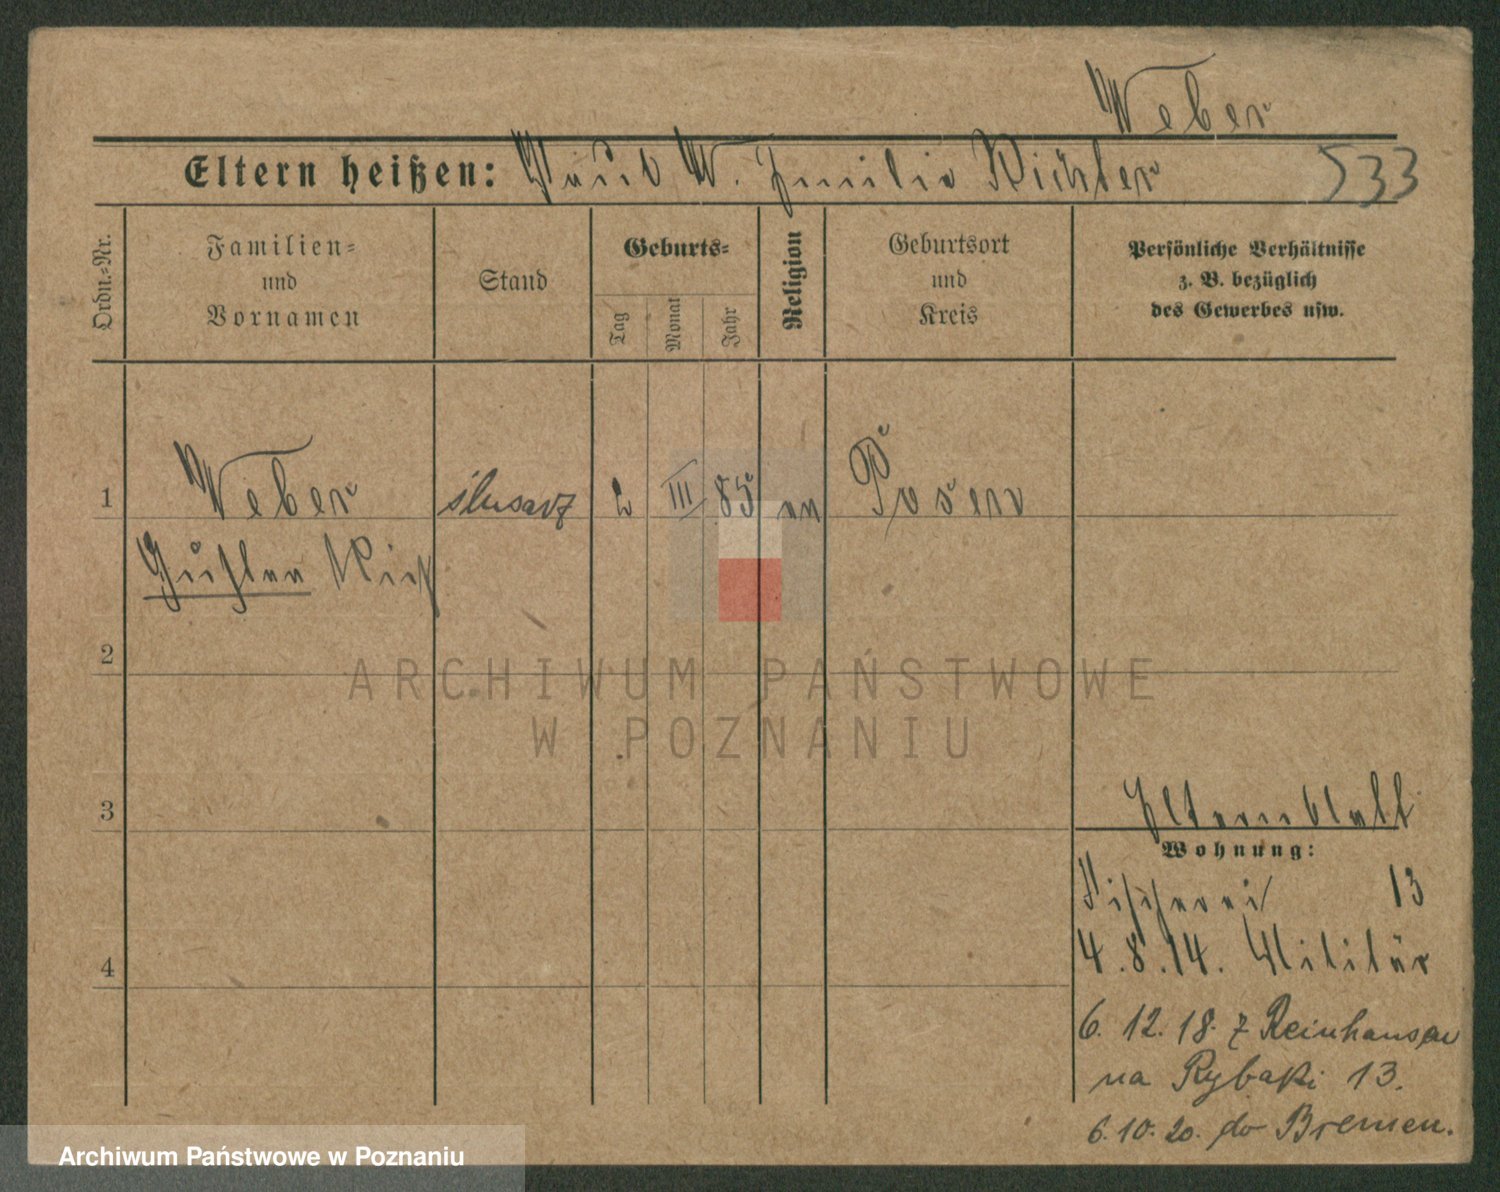 Weber
Eltern heißen: Paul W. Emilie Richter 533
Ordn.-Nr.
Familien-
und
Vornamen
Stand
Geburts-
Tag
Monat
Jahr
Religion
Geburtsort
und
Kreis
Persönliche Verhältnisse
z. B. bezüglich
des Gewerbes usw.
1 Weber ślusarz 2 III 85 Posen
2
3
4
Elternblatt
Wohnung:
Fischerei 13
4.8.14. Militär
6.12.18. z Reinhausen
na Rybaki 13.
6.10.20. do Bremen.
ARCHIWUM PAŃSTWOWE
W POZNANIU
Archiwum Państwowe w Poznaniu